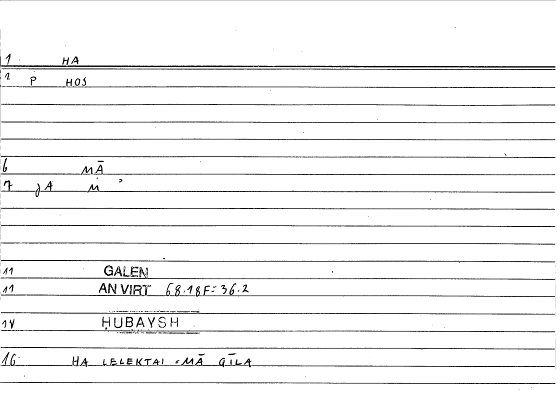 1 HA
2 P HOS
6 MĀ
7 jA Mʾ
11 GALEN
11 AN VIRT 68.18F = 36.2
14 ḤUBAYSH
16 HA LELEKTAI · MĀ QĪLA